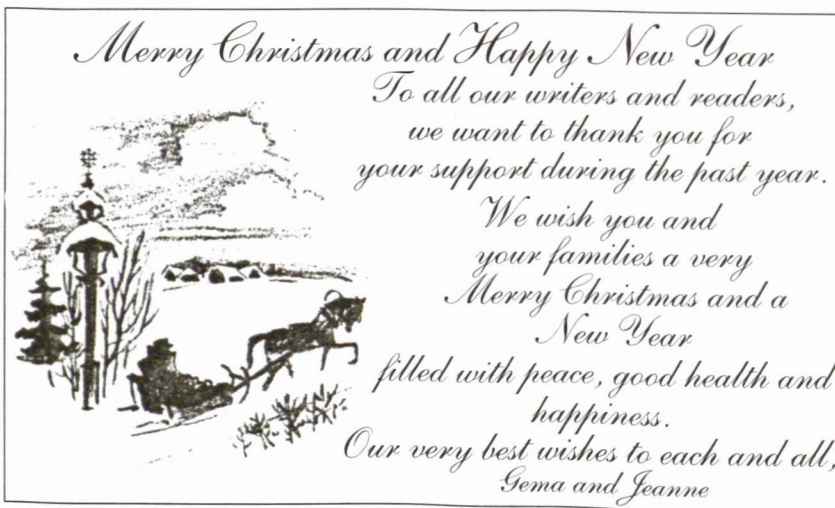 Merry Christmas and Happy New Year
To all our writers and readers,
we want to thank you for
your support during the past year.
We wish you and
your families a very
Merry Christmas and a
New Year
filled with peace, good health and
happiness.
Our very best wishes to each and all,
Gema and Jeanne